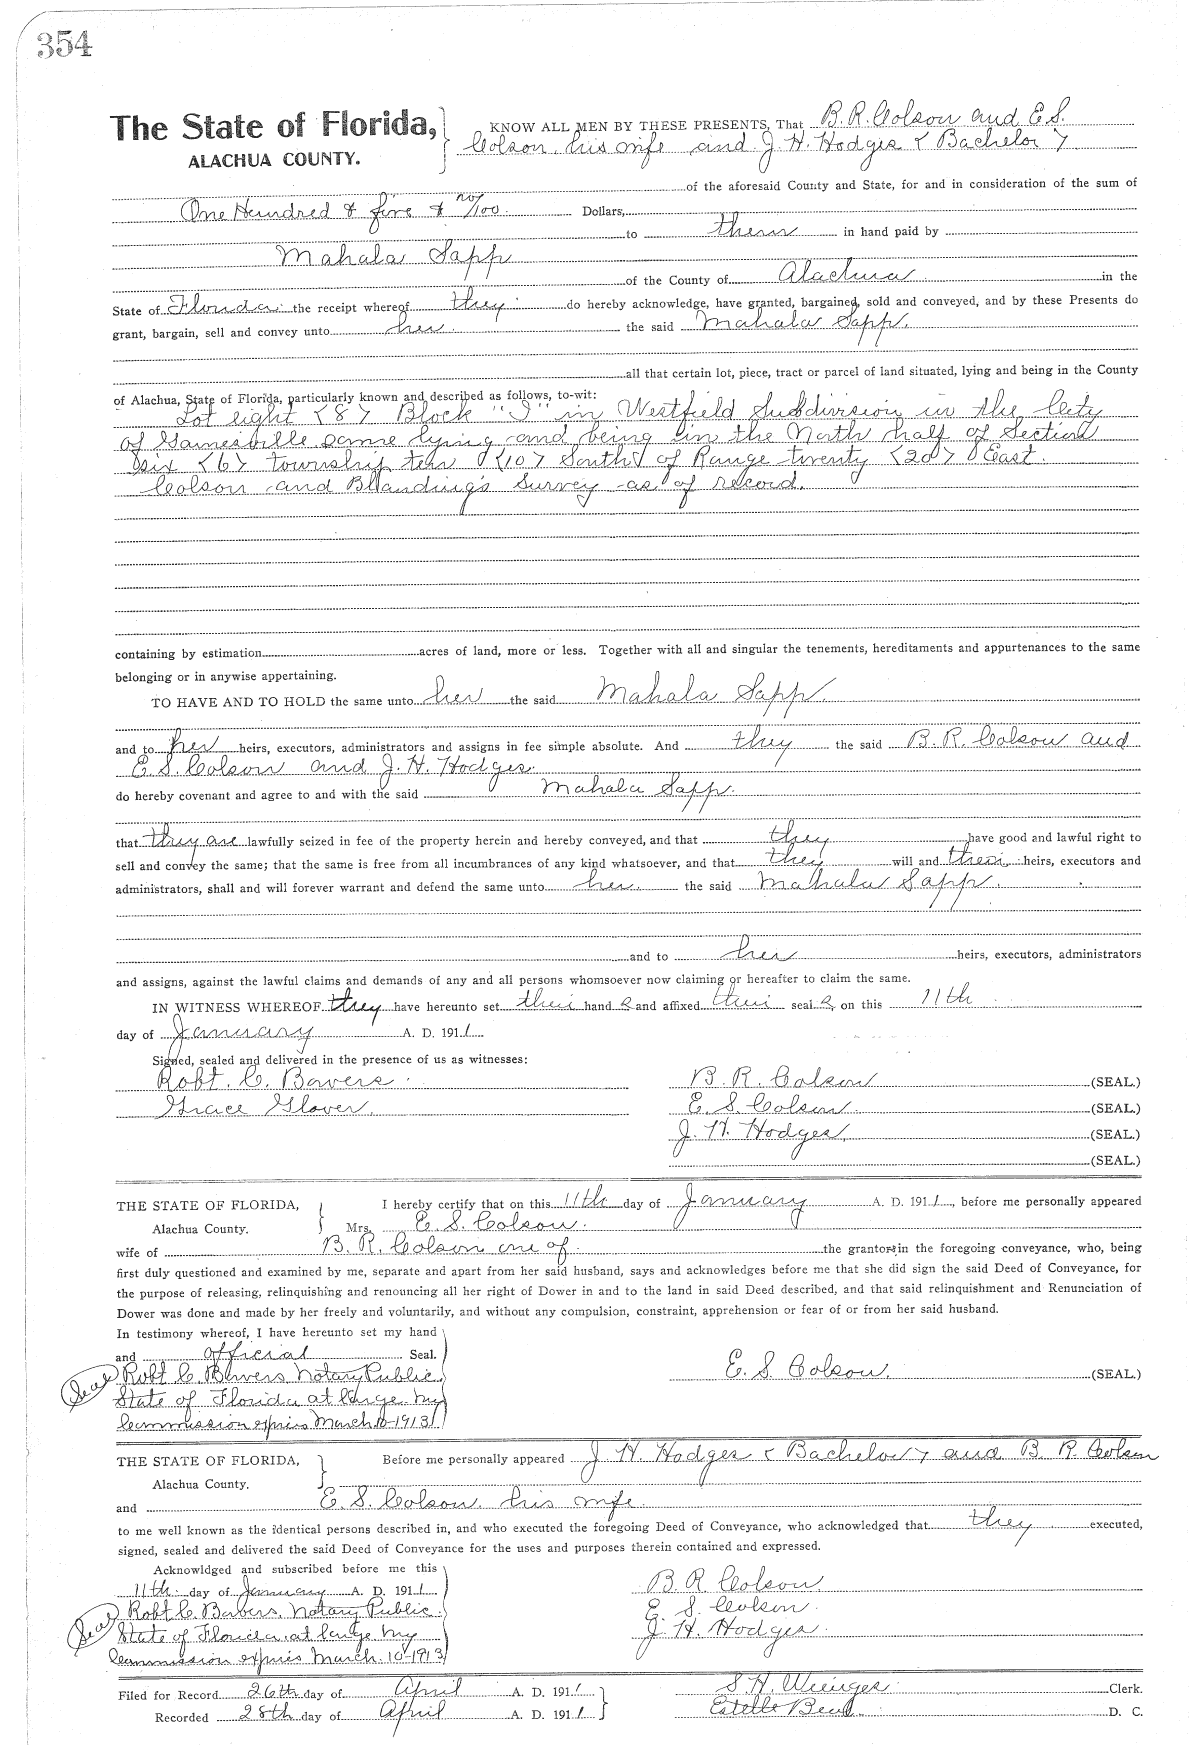 354
The State of Florida, KNOW ALL MEN BY THESE PRESENTS, That B. R. Colson and E. S.
ALACHUA COUNTY. Colson, his wife and J. H. Hodges < Bachelor >
of the aforesaid County and State, for and in consideration of the sum of
One Hundred & five & no/100 Dollars,
to them in hand paid by
Mahala Sapp
of the County of Alachua in the
State of Florida the receipt whereof they do hereby acknowledge, have granted, bargained, sold and conveyed, and by these Presents do
grant, bargain, sell and convey unto her the said Mahala Sapp.
all that certain lot, piece, tract or parcel of land situated, lying and being in the County
of Alachua, State of Florida, particularly known and described as follows, to-wit:
Lot eight <8> Block "I" in Westfield Subdivision in the City
of Gainesville same lying and being in the North half of Section
six <6> township ten <10> South of Range twenty <20> East.
Colson and Blanding's Survey as of record.
containing by estimation acres of land, more or less. Together with all and singular the tenements, hereditaments and appurtenances to the same
belonging or in anywise appertaining.
TO HAVE AND TO HOLD the same unto her the said Mahala Sapp
and to her heirs, executors, administrators and assigns in fee simple absolute. And they the said B. R. Colson and
E. S. Colson and J. H. Hodges.
do hereby covenant and agree to and with the said Mahala Sapp.
that they are lawfully seized in fee of the property herein and hereby conveyed, and that they have good and lawful right to
sell and convey the same; that the same is free from all incumbrances of any kind whatsoever, and that they will and their heirs, executors and
administrators, shall and will forever warrant and defend the same unto her the said Mahala Sapp.
and to her heirs, executors, administrators
and assigns, against the lawful claims and demands of any and all persons whomsoever now claiming or hereafter to claim the same.
IN WITNESS WHEREOF they have hereunto set their hand s and affixed their seal s on this 11th
day of January A. D. 1911.
Signed, sealed and delivered in the presence of us as witnesses:
Robt. C. Bowers. B. R. Colson (SEAL.)
Grace Glover. E. S. Colson. (SEAL.)
J. H. Hodges. (SEAL.)
(SEAL.)
THE STATE OF FLORIDA, I hereby certify that on this 11th day of January A. D. 1911, before me personally appeared
Alachua County. Mrs. E. S. Colson.
wife of B. R. Colson one of the grantors in the foregoing conveyance, who, being
first duly questioned and examined by me, separate and apart from her said husband, says and acknowledges before me that she did sign the said Deed of Conveyance, for
the purpose of releasing, relinquishing and renouncing all her right of Dower in and to the land in said Deed described, and that said relinquishment and Renunciation of
Dower was done and made by her freely and voluntarily, and without any compulsion, constraint, apprehension or fear of or from her said husband.
In testimony whereof, I have hereunto set my hand
and official Seal.
Seal Robt C. Bowers Notary Public E. S. Colson. (SEAL)
State of Florida at large My
Commission expires March 10-1913
THE STATE OF FLORIDA, Before me personally appeared J. H. Hodges < Bachelor > and B. R. Colson
Alachua County.
and E. S. Colson, his wife.
to me well known as the identical persons described in, and who executed the foregoing Deed of Conveyance, who acknowledged that they executed,
signed, sealed and delivered the said Deed of Conveyance for the uses and purposes therein contained and expressed.
Acknowldged and subscribed before me this
11th day of January A. D. 1911. B. R. Colson
Seal Robt C. Bowers, Notary Public. E. S. Colson.
State of Florida at large My J. H. Hodges.
Commission expires March. 10-1913
Filed for Record 26th day of April A. D. 1911 S. H. Wienges Clerk.
Recorded 28th day of April A. D. 1911. Estelle D. C.